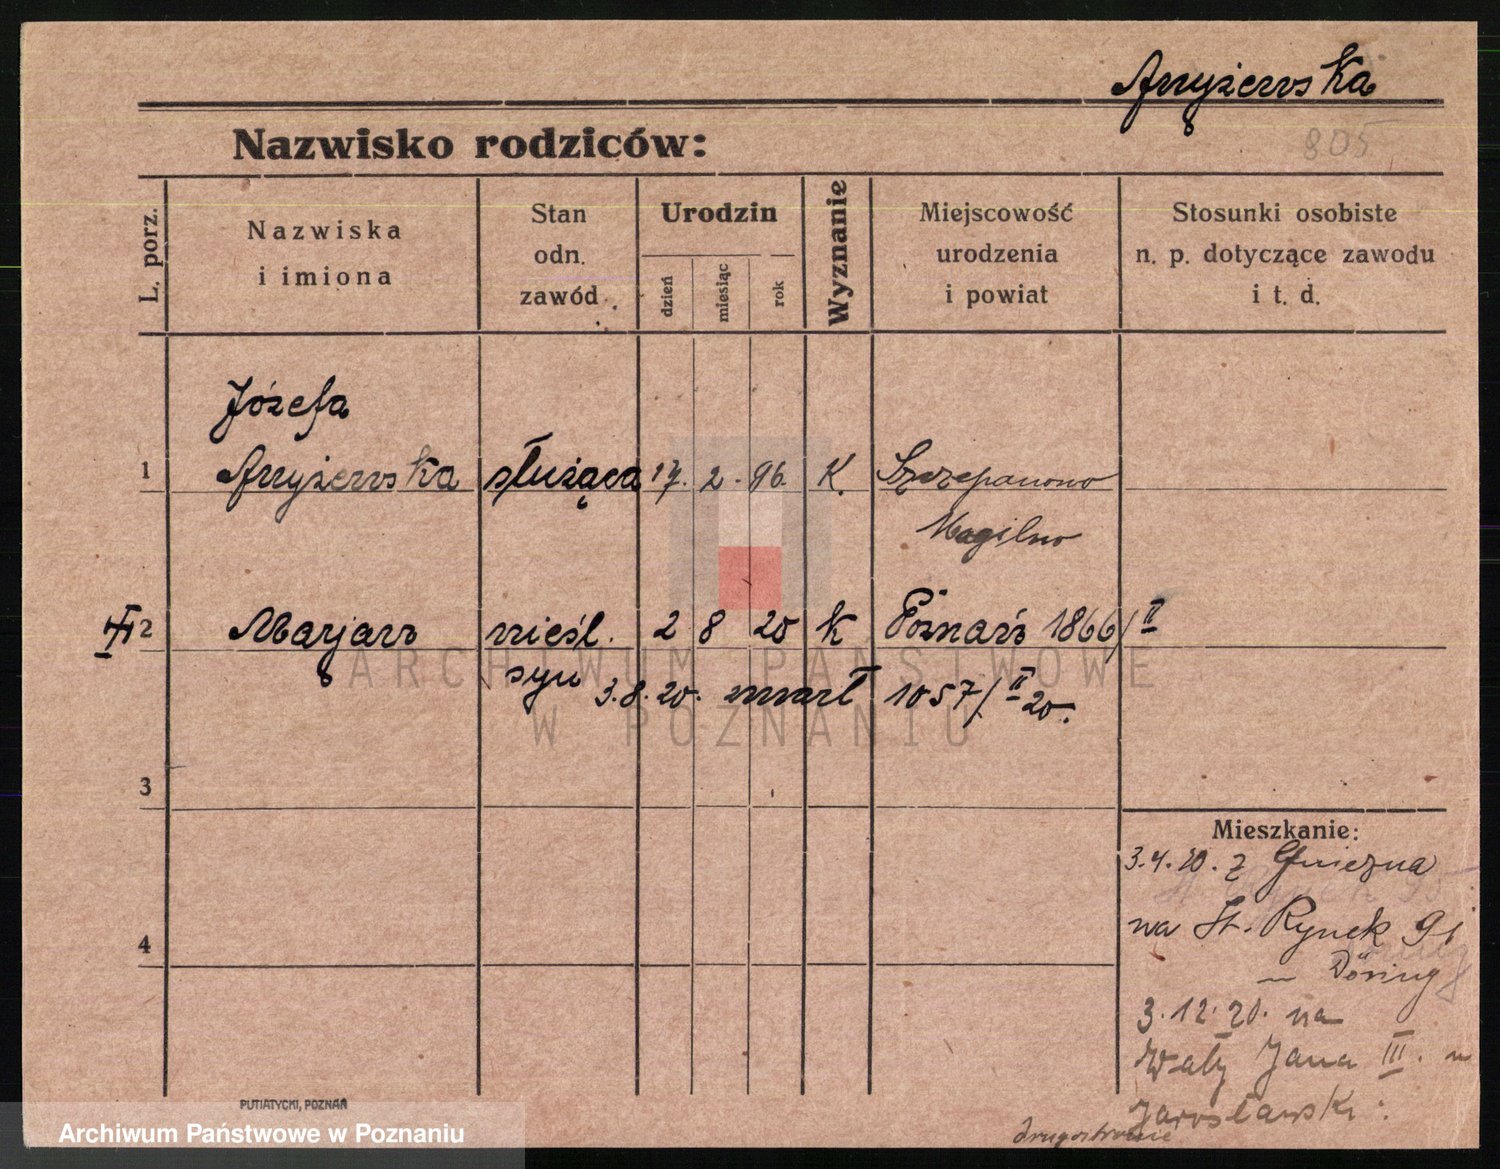 Anyżewska
805
Nazwisko rodziców:
L. porz.
Nazwiska
i imiona
Stan
odn.
zawód
Urodzin
dzień
miesiąc
rok
Wyznanie
Miejscowość
urodzenia
i powiat
Stosunki osobiste
n. p. dotyczące zawodu
i t. d.
Józefa
1 Anyżewska służąca 17. 2. 96. K. Szczepanowo
Mogilno
2 Marjan nieśl. 2 8 20 K Poznań 1866/II
syn 3.8.20. zmarł 1057/II 20.
3
4
Mieszkanie:
3.4.20. z Gniezna
na St. Rynek 91
Döring
3.12.20. na
Wały Jana III. u
Jarosławski.
drugostronie
PUTIATYCKI, POZNAŃ
ARCHIWUM PAŃSTWOWE
W POZNANIU
Archiwum Państwowe w Poznaniu